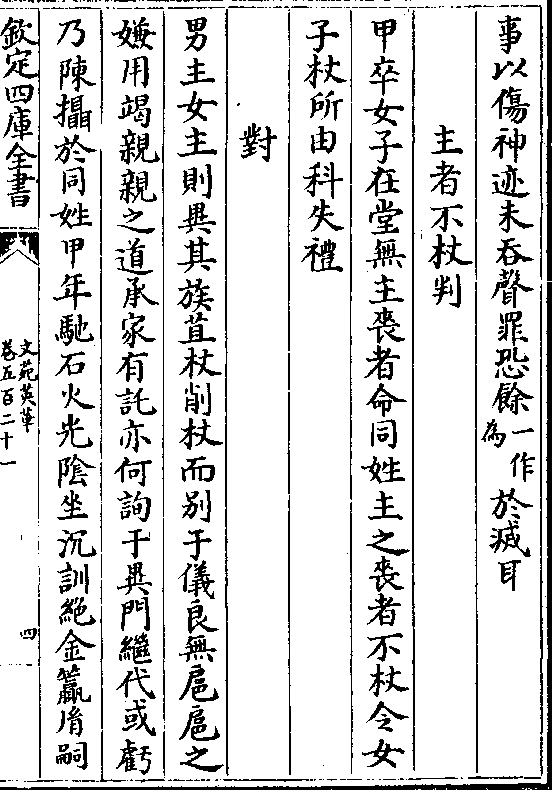 事以傷神迹未吞聲罪恐餘一作為於滅耳
主者不杖判
甲卒女子在堂無主喪者命同姓主之喪者不杖令女
子杖所由科失禮
對
男主女主則異其族苴杖削杖而別于儀良無扈扈之
嫌用竭親親之道承家有託亦何詢于異門繼代或虧
乃陳攝於同姓甲年馳石火光陰坐沉訓絶金籯胤嗣
欽定四庫全書
文苑英華
卷五百二十一
四